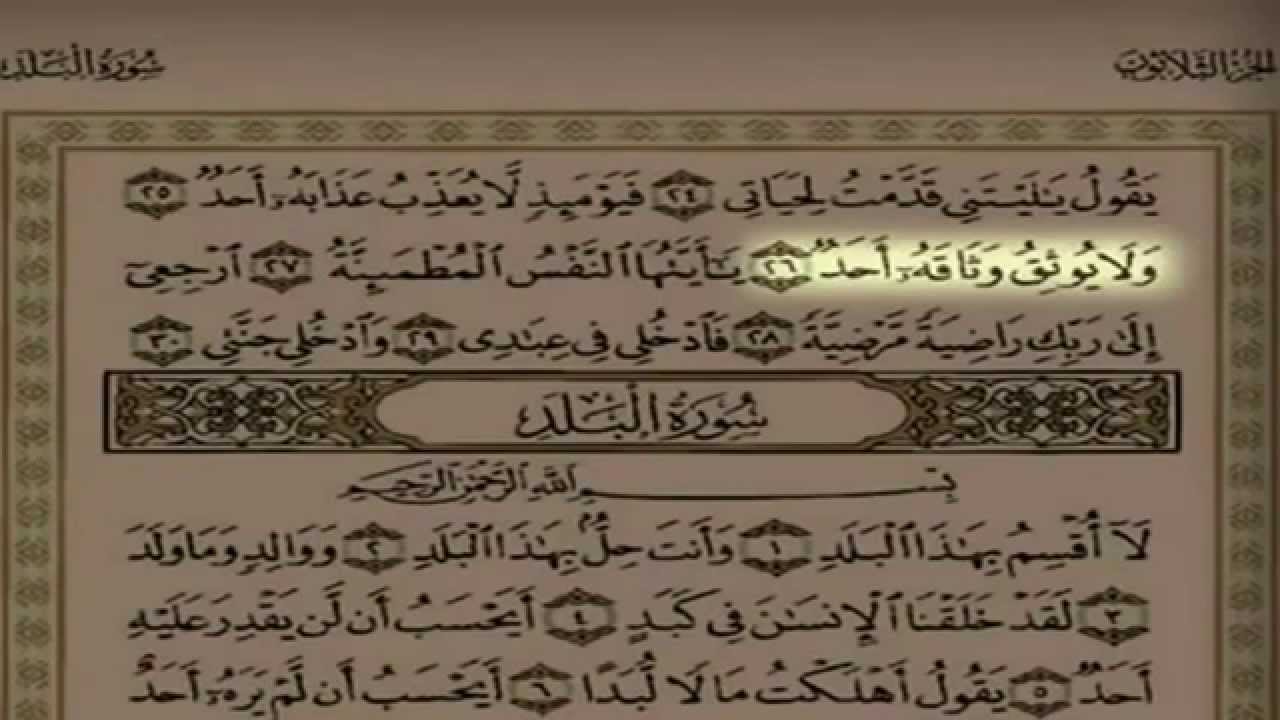 الجزء الثلاثون
سورة البلد
يَقُولُ يَٰلَيْتَنِى قَدَّمْتُ لِحَيَاتِى ٢٤ فَيَوْمَئِذٍ لَّا يُعَذِّبُ عَذَابَهُۥٓ أَحَدٌ ٢٥
وَلَا يُوثِقُ وَثَاقَهُۥٓ أَحَدٌ ٢٦ يَٰٓأَيَّتُهَا ٱلنَّفْسُ ٱلْمُطْمَئِنَّةُ ٢٧ ٱرْجِعِىٓ
إِلَىٰ رَبِّكِ رَاضِيَةً مَّرْضِيَّةً ٢٨ فَٱدْخُلِى فِى عِبَٰدِى ٢٩ وَٱدْخُلِى جَنَّتِى ٣٠
سُورَةُ الْبَلَدِ
بِسْمِ ٱللَّهِ ٱلرَّحْمَٰنِ ٱلرَّحِيمِ
لَآ أُقْسِمُ بِهَٰذَا ٱلْبَلَدِ ١ وَأَنتَ حِلٌّۢ بِهَٰذَا ٱلْبَلَدِ ٢ وَوَالِدٍ وَمَا وَلَدَ
٣ لَقَدْ خَلَقْنَا ٱلْإِنسَٰنَ فِى كَبَدٍ ٤ أَيَحْسَبُ أَن لَّن يَقْدِرَ عَلَيْهِ
أَحَدٌ ٥ يَقُولُ أَهْلَكْتُ مَالًا لُّبَدًا ٦ أَيَحْسَبُ أَن لَّمْ يَرَهُۥٓ أَحَدٌ